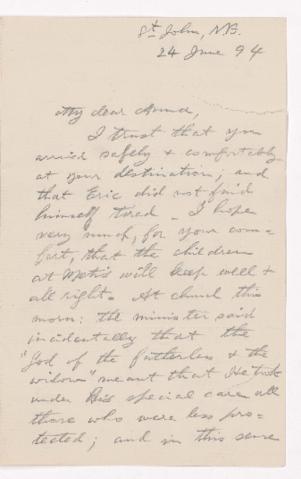 St. John, N.B.
24 June 94
My dear Anna,
I trust that you
arrived safely & comfortably
at your destination; and
that Eric did not find
himself tired - I hope
very much, for your com-
fort, that the children
at Metis will keep well &
all right. At church this
morn: the minister said
incidentally that the
"God of the fatherless & the
widow" meant that He took
under His special care all
those who were less pro-
tected; and in this sense